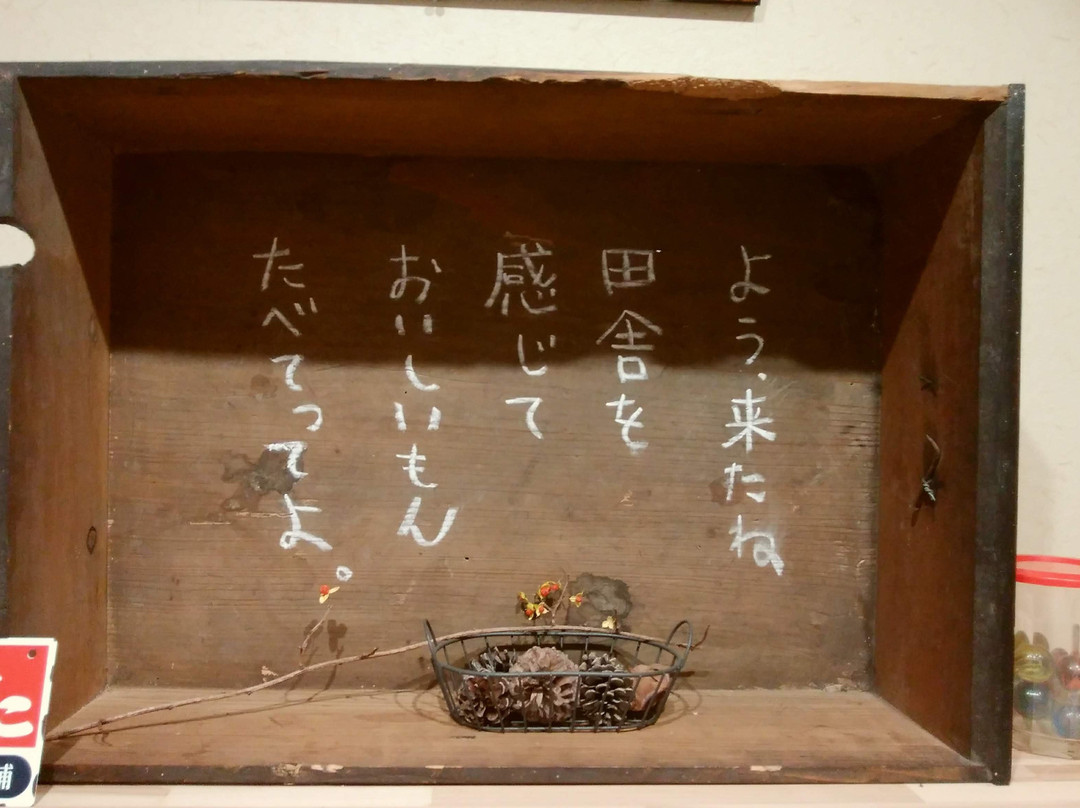 よう、来たね
田舎を
感じて
おいしいもん
たべてってよ。
た
舗